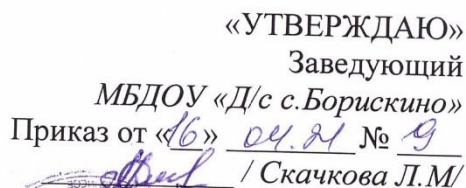 «УТВЕРЖДАЮ»
Заведующий
МБДОУ «Д/с с.Борискино»
Приказ от «16» 04.21 № 9
/ Скачкова Л.М/